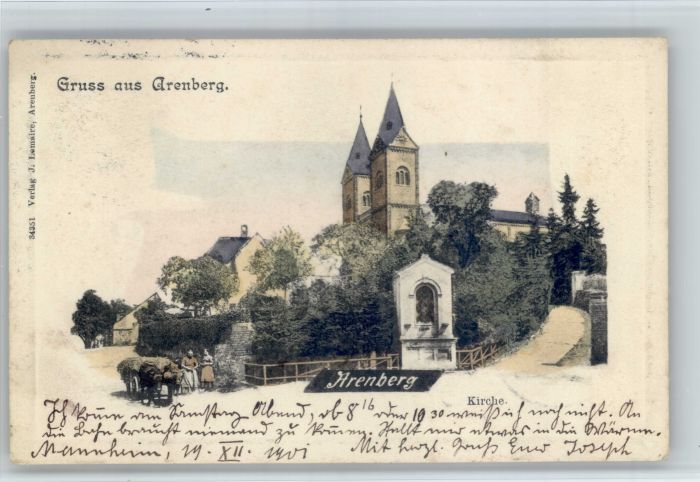 Gruss aus Arenberg.
34351 Verlag J. Lemaire, Arenberg.
Arenberg
Kirche.
Ich komme am Samstag Abend, ob 8 16 oder 10 30 weiß ich noch nicht. An
die Bahn braucht niemand zu kommen. Stellt mir etwas in die Wärme.
Mannheim, 19. XII. 1901 Mit herzl. Gruß Euer Joseph